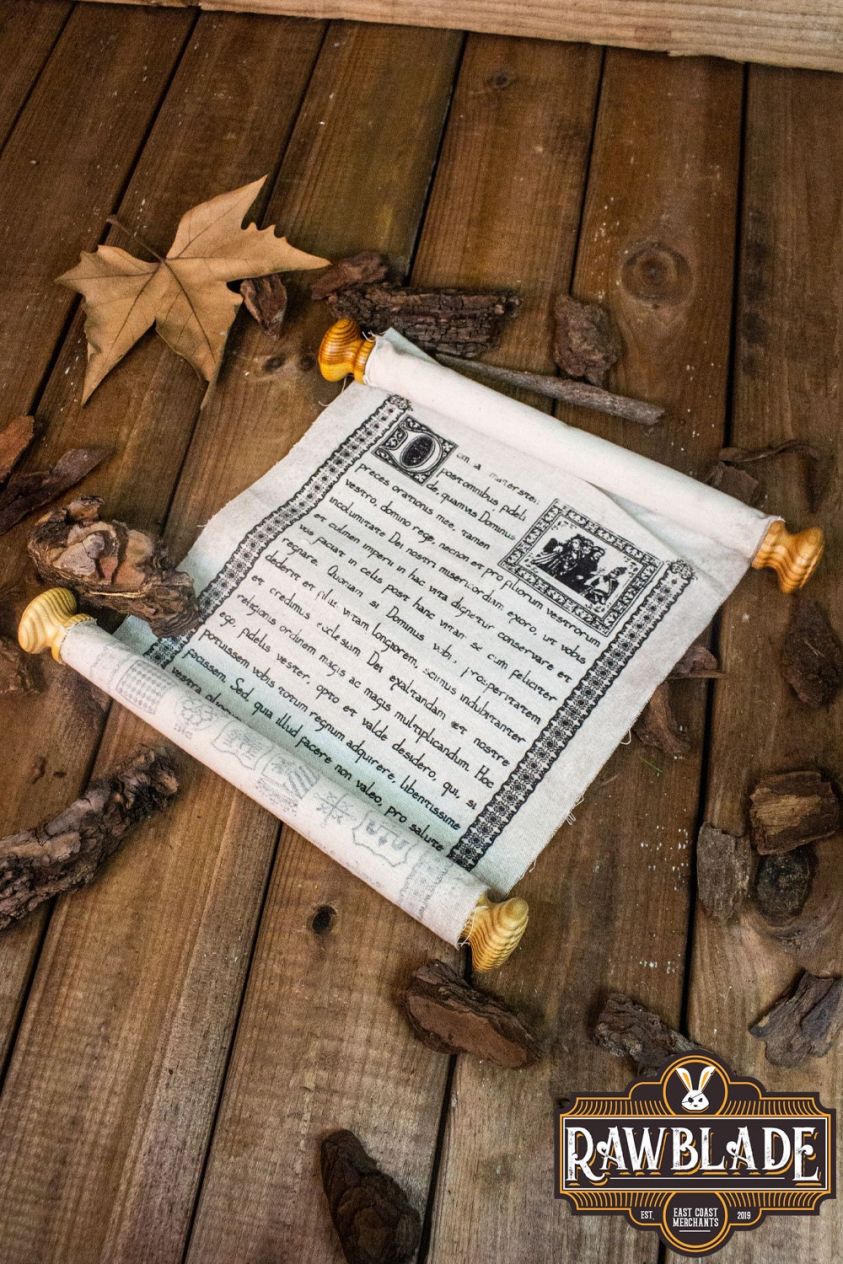 D
postomnibus fideli
de, quamvis Dominus
preces orationis mee, tamen
vestro, domino rege, necnon et pro filiorum vestrorum
incolumitate Dei nostri misericordiam exoro, ut vobis
et culmen imperii in hac vita dignetur conservare et
vos faciat in celis post hanc vitam se cum feliciter
regnare. Quoniam si Dominus prosperitatem
dederit et filiis vitam longiorem, scimus indubitanter
et credimus ecclesiam Dei exaltandam et nostre
religionis ordinem magis ac magis multiplicandum. Hoc
fidelis vester, opto et valde desidero, qui, si
potuissem vobis totum regnum adquirere, libentissime
fecissem. Sed, quia illud facere non valeo, pro salute
vestra
RAWBLADE
EST. EAST COAST 2019
MERCHANTS